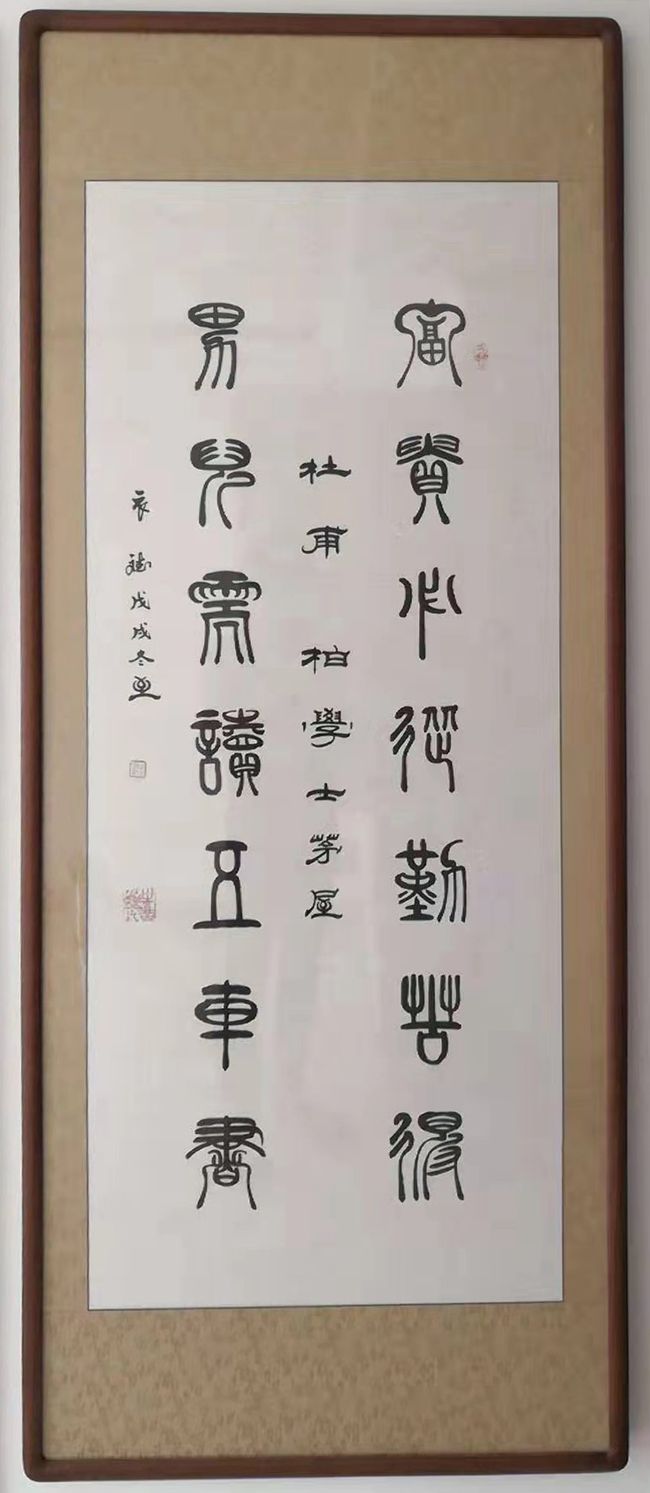 富貴必從勤苦得
杜甫 柏學士茅屋
男兒需讀五車書
戊戌冬至